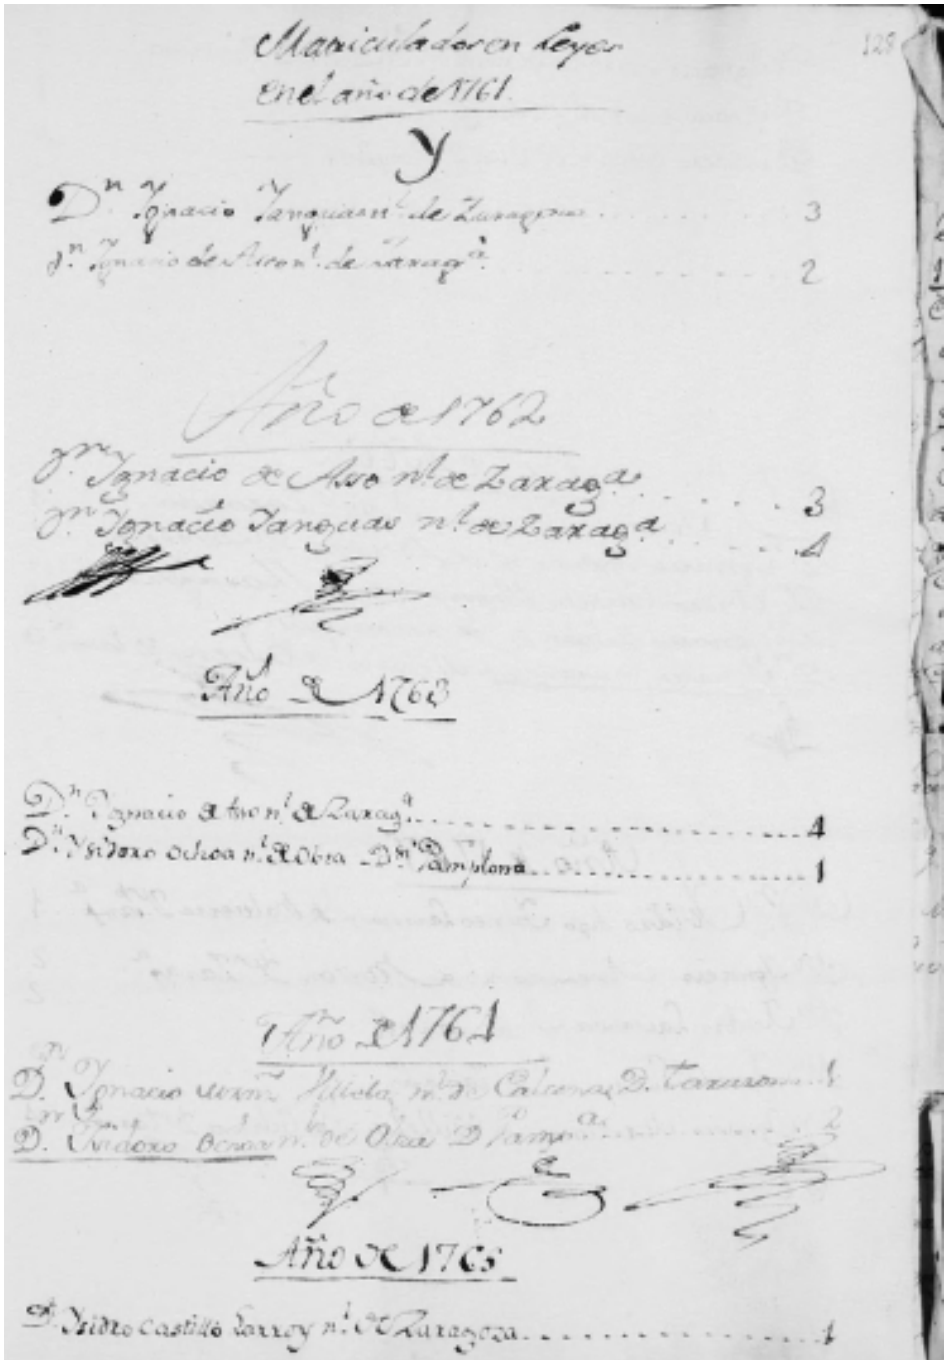 128
Matriculados en Leyes
en el año de 1761.
Y
Dn. Ygnacio Yanguas nl. de Zaragoza 3
Dn. Ygnacio de Asso nl. de Zaraga. 2
Año de 1762
Dn. Ygnacio de Asso nl. de Zaraga. 3
Dn. Ygnacio Yanguas nl. de Zaraga. 4
Año de 1763
Dn. Ygnacio de Asso nl. de Zaraga. 4
Dn. Ysidoro Ochoa nl. de Obra Pamplona 1
Año de 1764
Dn. Ygnacio nl. de Calcena D. Tarazona 1
Dn. Ysidoro Ochoa nl. de D. Pampa. 2
Año de 1765
D. Ysidro Castillo Larroy nl. de Zaragoza 1